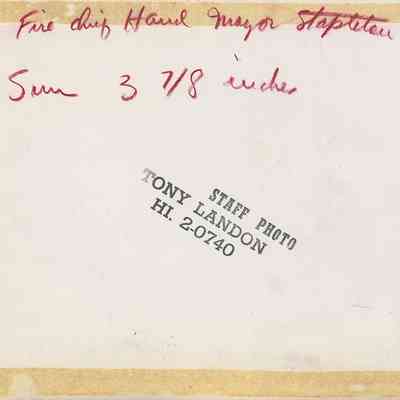 Fire chief Hand Mayor Stapleton
Sun 3 7/8 inches
STAFF PHOTO
TONY LANDON
HI. 2-0740